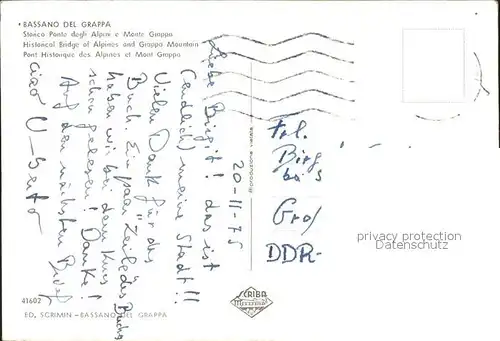 • BASSANO DEL GRAPPA
Storico Ponte degli Alpini e Monte Grappa
Historical Bridge of Alpines and Grappa Mountain
Pont Historique des Alpines et Mont Grappa
20-11-75
Liebe Birgit! das ist
(endlich) meine Stadt!!
Vielen Dank für das
Buch. Ein paar Zeile des Buchs
haben wir bei dem Kurs
schon gelesen! Danke!
Auf den nächsten Brief
ciao
Frl.
Birg
bei
Groß
DDR-
privacy protection
Datenschutz
Riproduzione vietata
41602
ED. SCRIMIN - BASSANO DEL GRAPPA